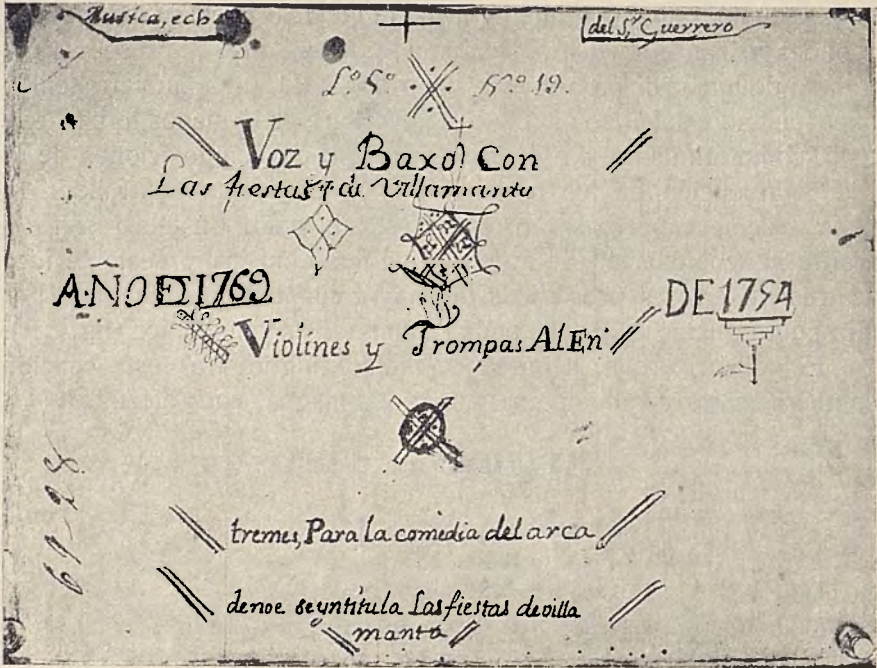 Musica, echa del S.r Guerrero
L.o 5.o N.o 19.
Voz y Baxo Con
Las fiestas de Villamanta
AÑO DE 1769 DE 1754
Violines y Trompas Al En
tremes, Para la comedia del arca
de noe se yntitula Las fiestas de villa
manta
61-28